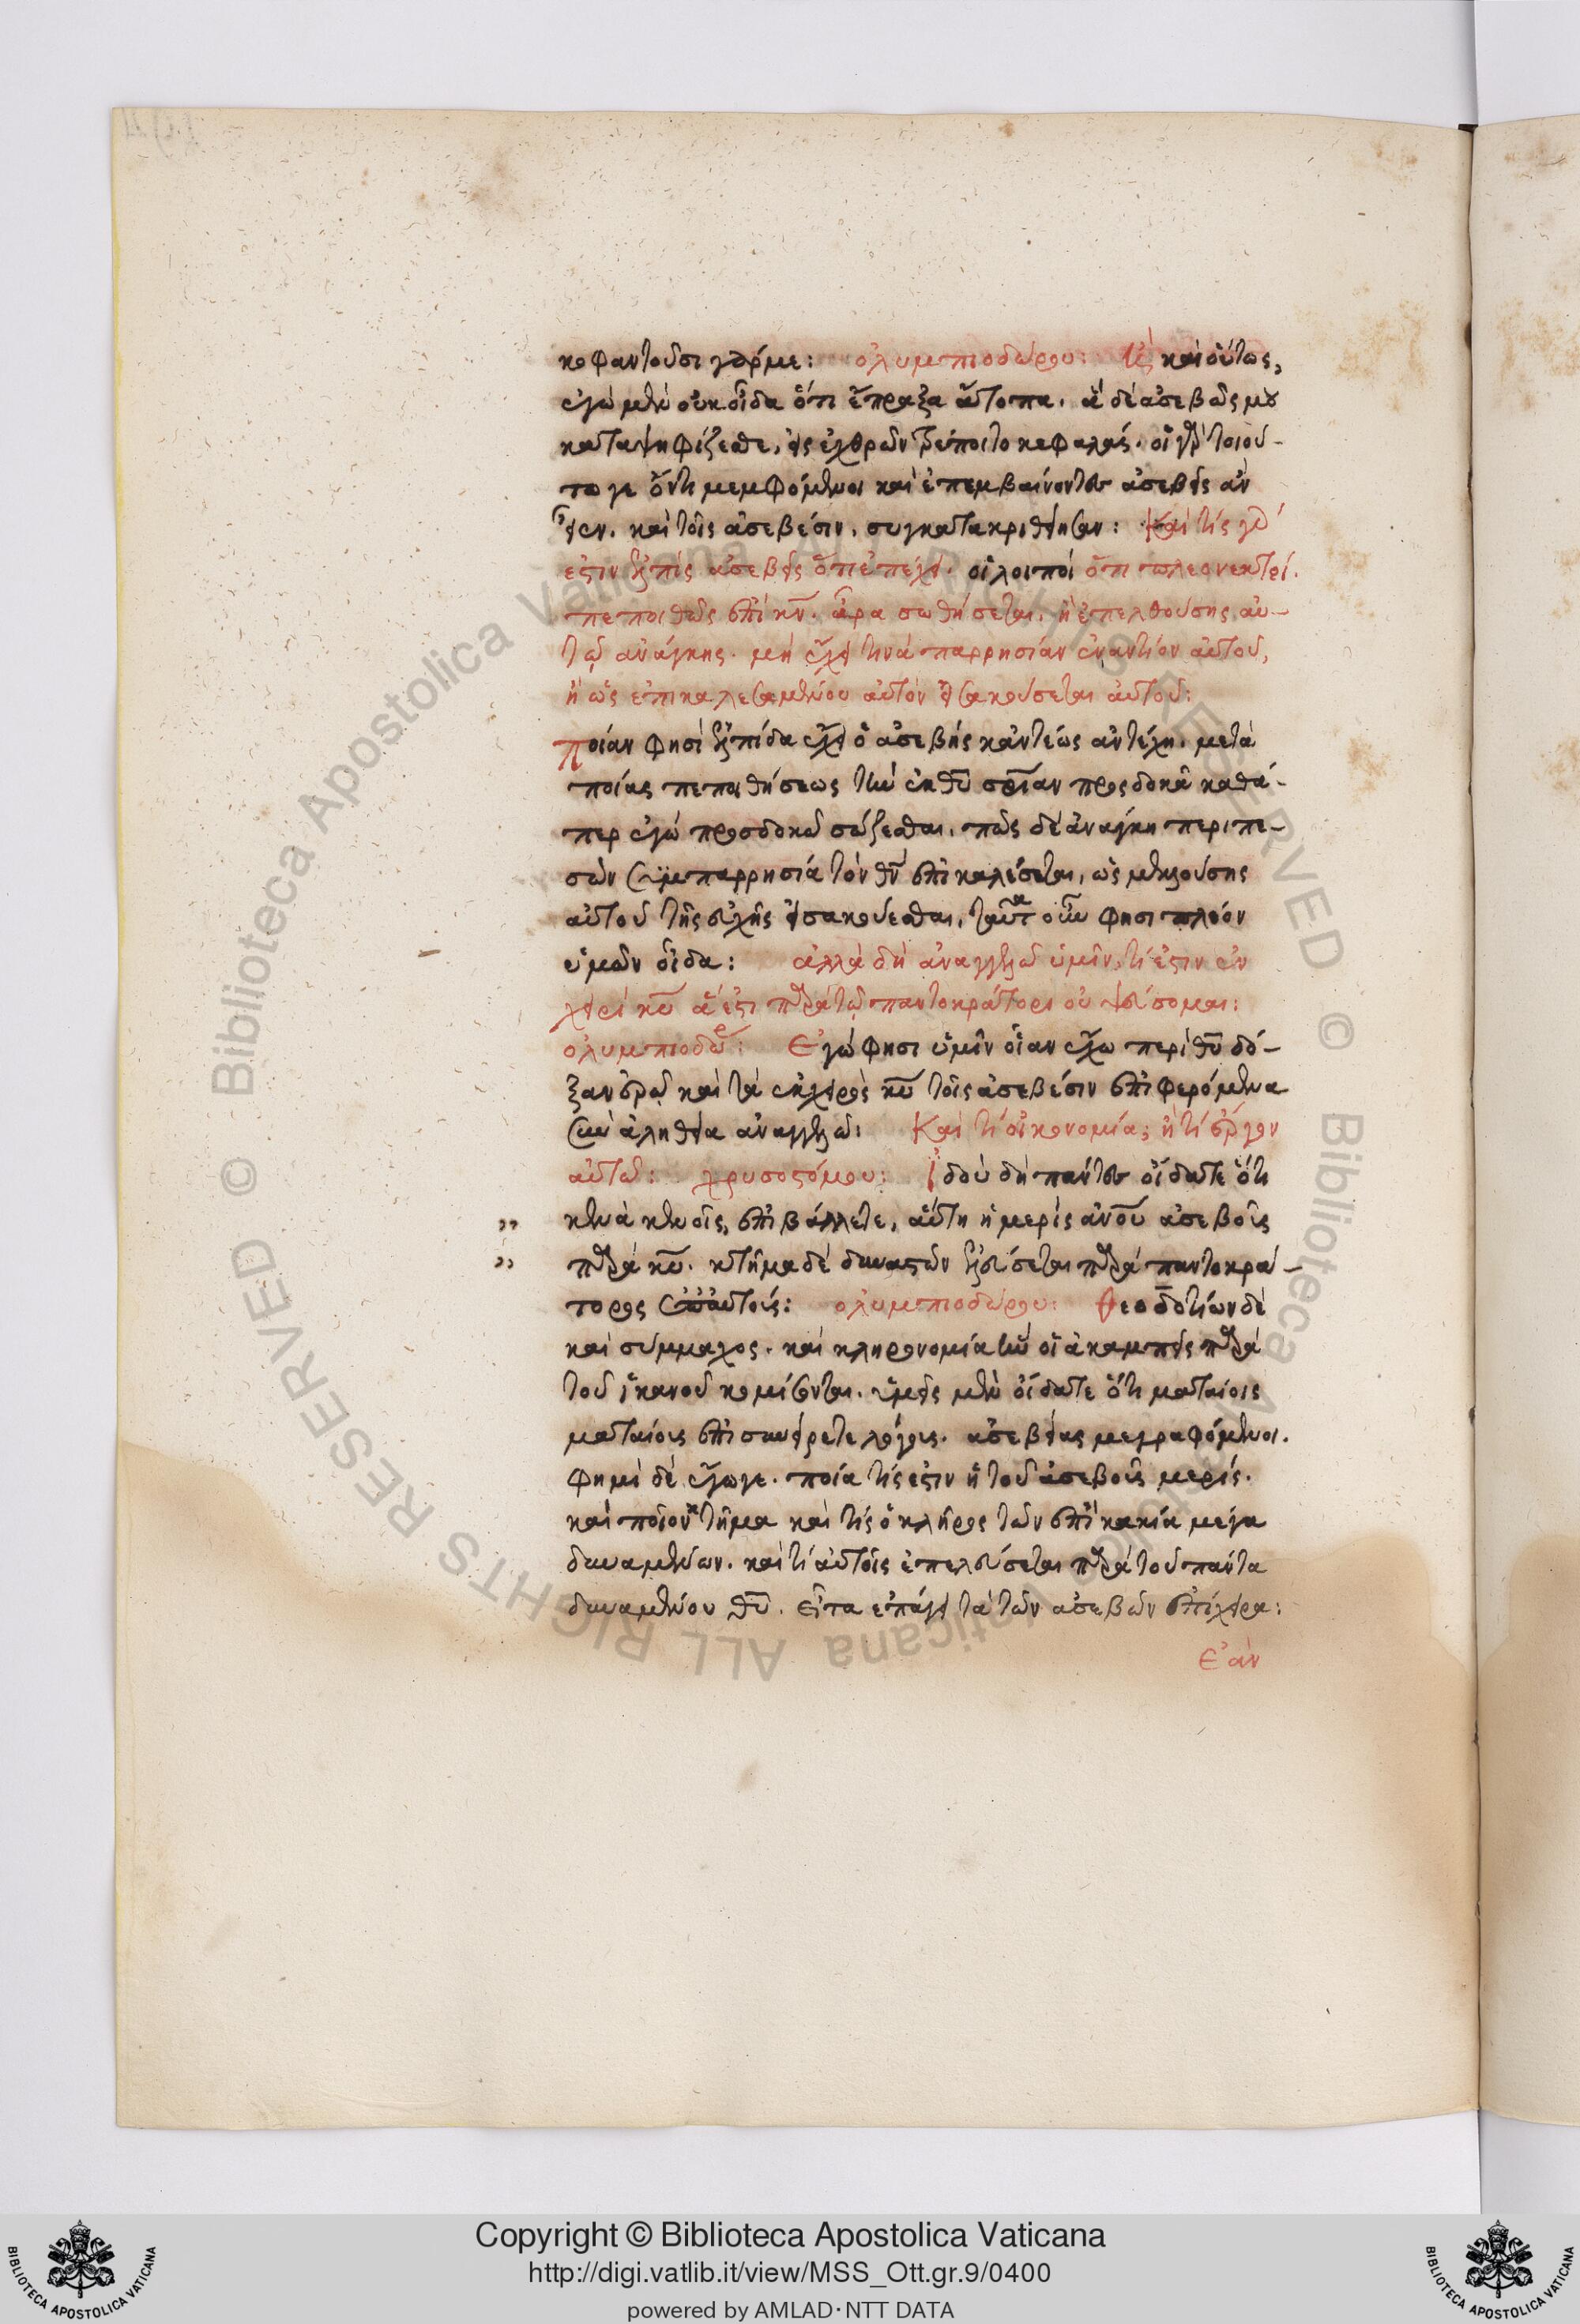 κοφαντοῦσι γάρ με: ὀλυμπιοδώρου: καὶ οὕτως,
ἐγὼ μὲν οὐκ οἶδα ὅτι ἔπραξα ἄτοπα. ἃ δὲ ἀσεβῶς μου
καταψηφίζεσθε, εἰς ἐχθρῶν τρέποιτο κεφαλάς. οἱ γὰρ τοιού-
τω γε ὄντι μεμφόμενοι καὶ ἐπεμβαίνοντες ἀσεβεῖς ἂν
εἶεν. καὶ τοῖς ἀσεβέσιν. συγκατακριθεῖησαν: Καὶ τίς γάρ
ἐστιν ἐλπὶς ἀσεβεῖ ὅτι ἐπέχει. οἱ λοιποί ὅτι πλεονεκτεῖ.
πεποιθὼς ἐπὶ κν. ἆρα σωθήσεται. ἢ ἐπελθούσης αὐ-
τῷ ἀνάγκης. μὴ ἔχει τινὰ παρρησίαν ἐναντίον αὐτοῦ,
ἢ ὡς ἐπικαλεσαμένου αὐτὸν εἰσακούσεται αὐτοῦ:
Ποίαν φησὶ ἐλπίδα ἔχει ὁ ἀσεβὴς κἂν τέως ἀντέχη. μετὰ
ποίας πεποιθήσεως τὴν ἐκ θυ σρίαν προσδοκᾶ καθά-
περ ἐγὼ προσδοκῶ σώζεσθαι. πῶς δὲ ἀνάγκη περιπε-
σὼν σὺμπαρρησία τὸν θν ἐπικαλέσεται, ὡς μελλούσης
αὐτοῦ τῆς εὐχῆς εἰσακούεσθαι. ταῦτα οὖν φησι πλέον
ὑμῶν οἶδα: ἀλλὰ δὴ ἀναγγελῶ ὑμῖν, τί ἐστιν ἐν
χειρὶ κυ ἅ ἐστι παρὰ τῷ παντοκράτορι οὐ ψεύσομαι:
ὀλυμπιοδώρ: Ἐγώ φησι ὑμῖν οἵαν ἔχω περὶ θυ δό-
ξαν ἐρῶ καὶ τὰ ἐκ χειρὸς κυ τοῖς ἀσεβέσιν ἐπιφερόμενα
σὺν ἀληθεία ἀναγγελῶ: Καὶ τί οἰκονομία; ἢ τί ἔργον
αὐτῶ: χρυσοστόμου: Ἰδοὺ δὴ πάντες οἴδατε ὅτι
κενὰ κενοῖς, ἐπιβάλλετε, αὕτη ἡ μερὶς ἀνου ἀσεβοῦς
παρὰ κυ. κτῆμα δὲ δυναστῶν ἐλεύσεται παρὰ παντοκρά-
τορος ἐπ' αὐτούς: ὀλυμπιοδώρου: Θεοδοτίων δὲ
καὶ σύμμαχος. καὶ κληρονομία ἣν οἱ ἀκαμπεῖς παρὰ
τοῦ ἱκανοῦ κομίσονται. ὑμεῖς μὲν οἴδατε ὅτι ματαίοις
ματαίοις ἐπισυνείρετε λόγοις. ἀσεβείας με γραφόμενοι.
φημὶ δὲ ἔγωγε. ποία τίς ἐστιν ἡ τοῦ ἀσεβοῦς μερίς.
καὶ ποῖον κτῆμα καὶ τίς ὁ κλῆρος τῶν ἐπὶ κακία μέγα
δυναμένων. καὶ τί αὐτοῖς ἐπελεύσεται παρὰ τοῦ πάντα
δυναμένου θυ. εἶτα ἐπάγει τὰ τῶν ἀσεβῶν ἐπίχειρα:
Ἐὰν
Copyright © Biblioteca Apostolica Vaticana
http://digi.vatlib.it/view/MSS_Ott.gr.9/0400
powered by AMLAD · NTT DATA